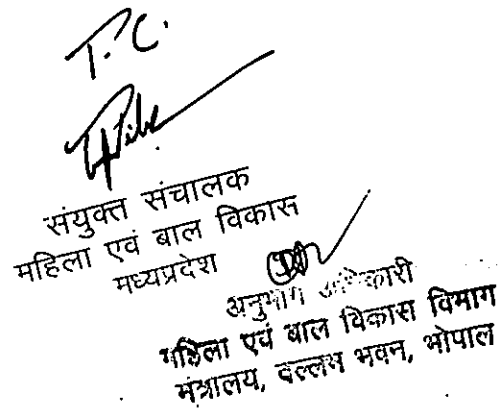 T.C.
संयुक्त संचालक
महिला एवं बाल विकास
मध्यप्रदेश
अनुभाग अधिकारी
महिला एवं बाल विकास विभाग
मंत्रालय, वल्लभ भवन, भोपाल